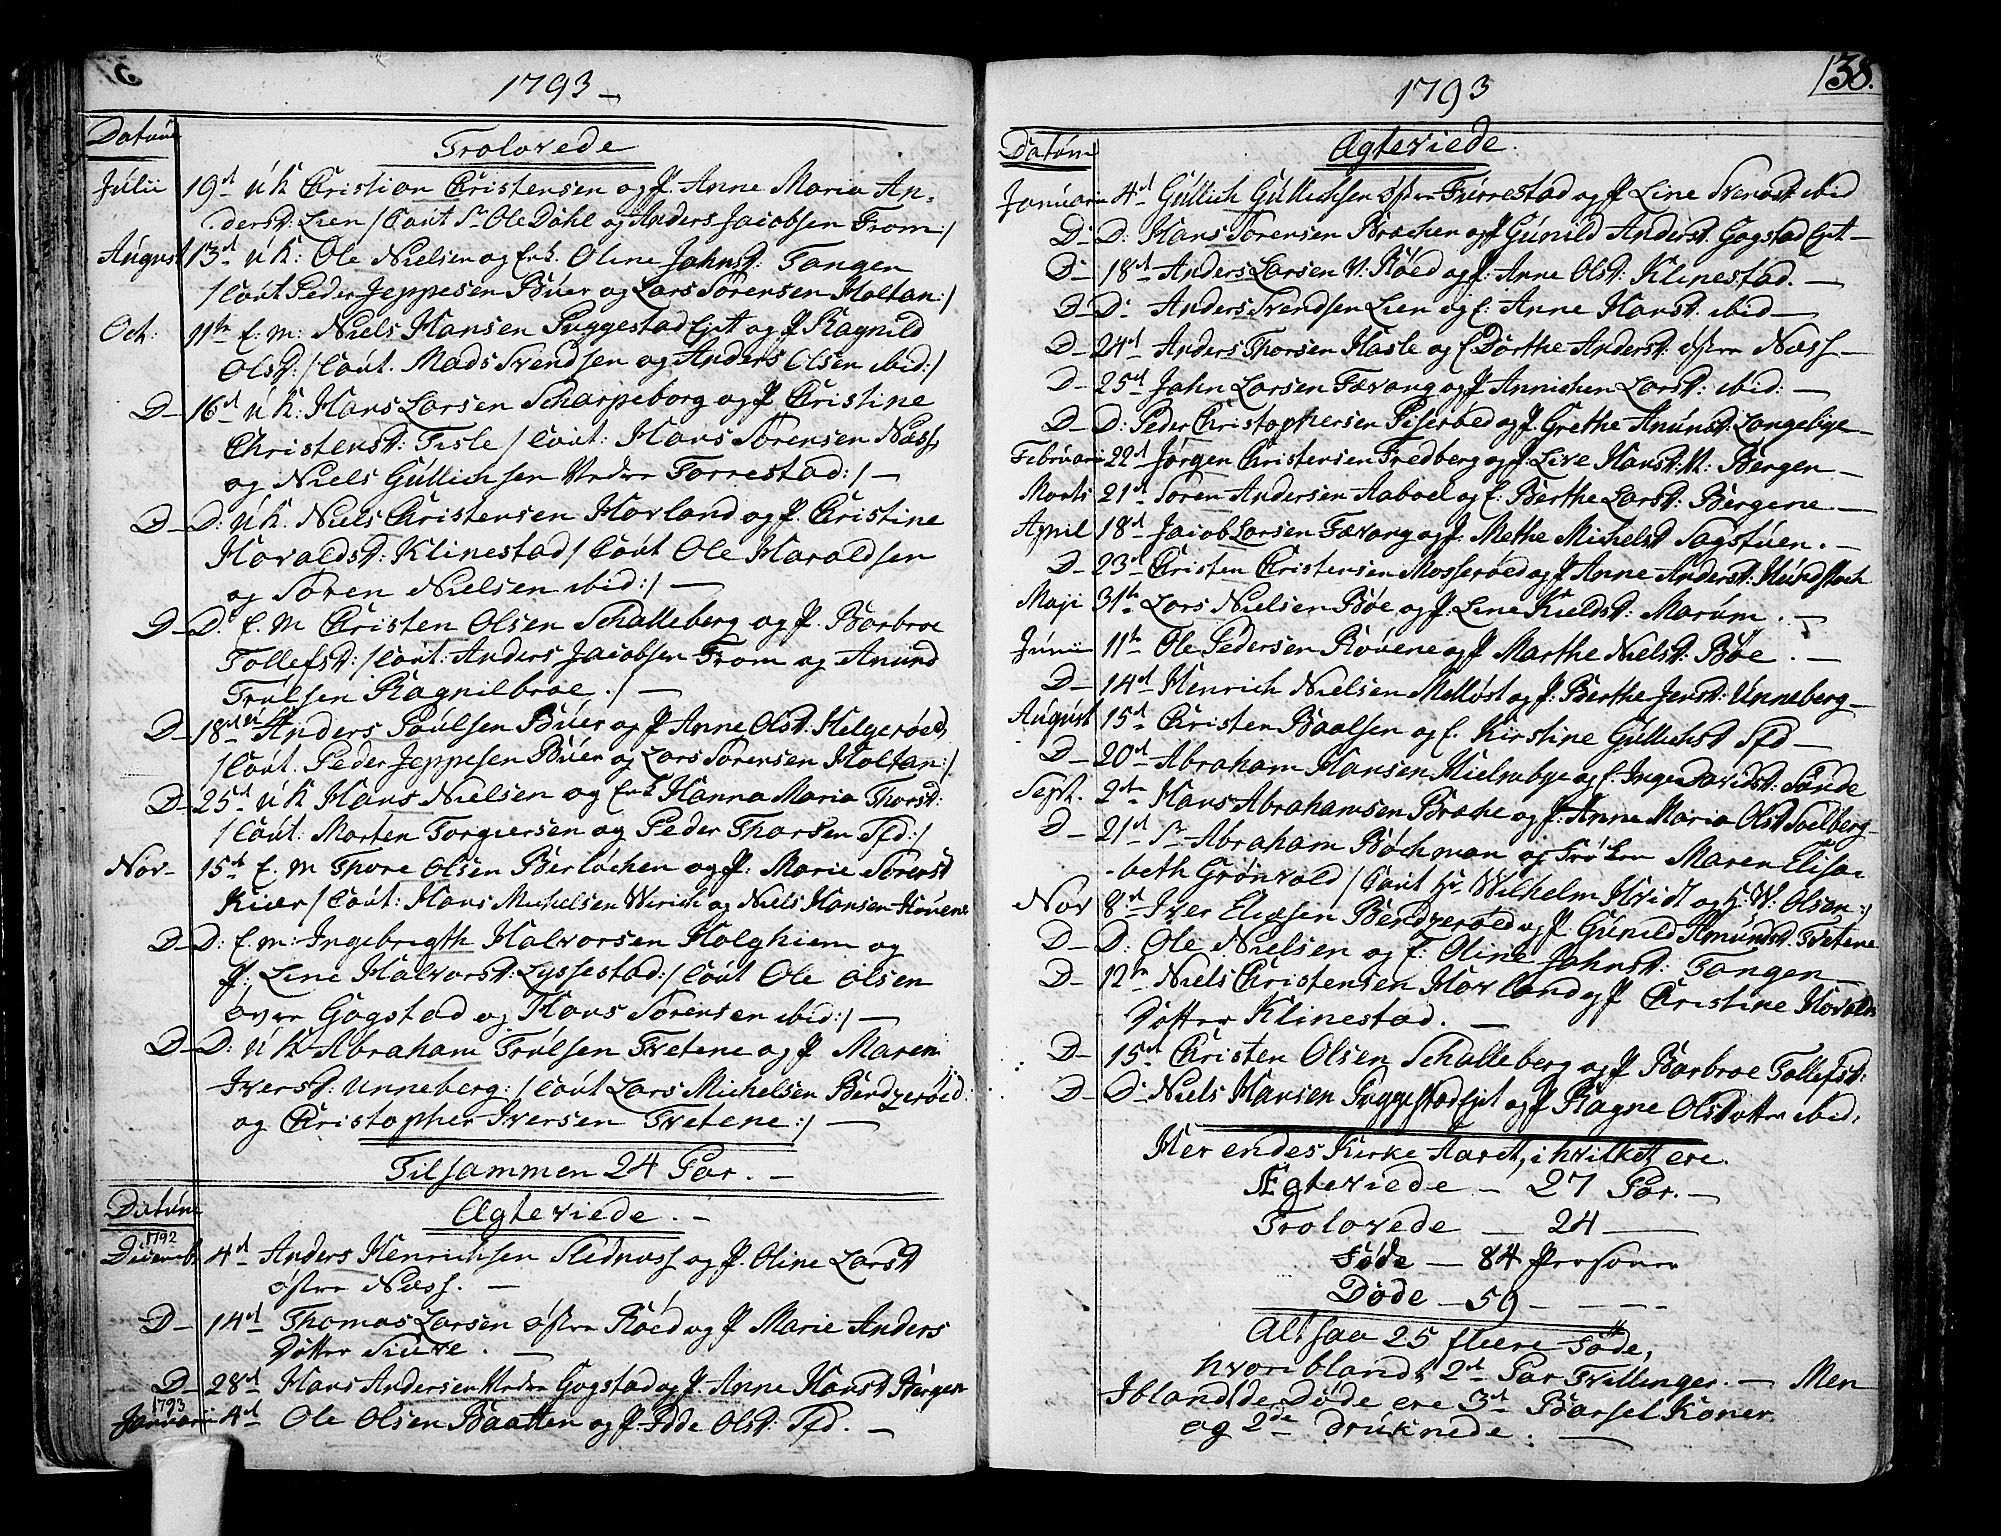 1793
Datum
Trolovede
Julii 19d uK Christian Christensen og P. Anne Maria An-
derst: Lien /: Caut Sr Ole Dahl og Anders Jacobsen From:/
August 13d uK: Ole Nielsen og Enk. Oline Jahnsd: Tangen
/Caut Peder Jeppesen Buer og Lars Sørensen Holtan:/
Oct: 11te E. M: Niels Hansen Puggestad Ejet og P. Ragnild
Olsd: /Caut. Mads Svendsen og Anders Olsen ibid:/
D- 16d uK: Hans Larsen Scharpeborg og P. Christine
Christensd: Fisle /Caut: Hans Sørensen Næss
og Niels Gullichsen Nedre Forrestad:/ -
D- D: uK. Niels Christensen Hovland og P. Christine
Havaldsd: Klinestad /Caut Ole Haraldsen
og Søren Nielsen ibid:/ -
D- D: E. M Christen Olsen Schalleberg og P. Barbroe
Tollefsd: /Caut: Anders Jacobsen From og Anund
Trulsen Ragnilbroe ./ -
D- 18de uK Anders Poulsen Buer og P Anne Olsd. Helgerøed
/Caut. Peder Jeppesen Buer og Lars Sørensen Holtan:/
D- 25d uK Hans Nielsen og Enk Hanna Maria Thorsd:
/Caut: Morten Torgiersen og Peder Thorsen Sfd:/
Nov- 15d E. M Thore Olsen Berløchen og P: Marie Sørensd
Kiær /Caut: Hans Michelsen Wirich og Niels Hansen Hovene
D- D: E. M: Ingebrigth Halvorsen Holghiem og
P: Line Halvorsd: Lyssestad: /Caut Ole Olsen
øvre Gogstad og Hans Sørensen ibid:/ -
D- D: uK Abraham Trulsen Tvetene og P. Maren
Iversd: Unneberg: /Caut Lars Michelsen Bendzerøed:
og Christopher Iversen Tvetene:/ -
Tilsammen 24 Par. -
Datum
Ægteviede. -
1792
Decemb. 4d Anders Henrichsen Slednass og P. Oline Larsd
østre Næss. -
D- 14d Thomas Larsen østre Røed og P Marie Anders
Dotter Siuve. -
D- 28d Hans Andersen Nedre Gogstad og P. Anne Hansd Bergen
1793
Januarii 4d Ole Olsen Baatten og P. Bode Olsd: Sfd. -
1793
138.
Datum
Ægteviede.
Januarii 4d Gullich Gullichsen østre Furrestad og P Line Svendsd ibid
D- D: Hans Sørensen Bræchen og P Gunild Andersd: Gogstad Ejet -
D- 18d Anders Larsen V: Røed og P: Anne Olsd: Klinestad. -
D- D- Anders Svendsen Lien og E: Anne Hansd: ibid -
D- 24d Anders Thorsen Hasle og E Dorthe Andersd: østre Næss -
D- 25d Jahn Larsen Færang og P Annichen Larsd: ibid: -
D- D: Peder Christophersen Piserød og P. Grethe Anunsd: Langebye -
Februarii 22d Jørgen Christensen Fredberg og P: Live Hansd: N: Bergen -
Marts 21d Søren Andersen Aaboel og E: Berthe Larsd: Bergene -
April 18d Jacob Larsen Færang og P: Methe Michelsd Sagstuen. -
D- 23d Christen Christensen Mosserøed og P Anne Andersd: Hundstoch
Maji 31te Lars Nielsen Bøe og P. Line Kieldsd: Marum. -
Junii 11te Ole Pedersen Rovene og P Marthe Nielsd: Bøe. -
D- 14d Henrich Nielsen Melløst og P: Berthe Jensd: Unneberg -
August 15d Christen Baalsen og E. Kirstine Gullichsd Sfd -
D- 20d Abraham Hansen Hielmbye og E: Inger Davidsd: Sande
Sept. 2te Hans Abrahamsen Bræke og P: Anne Maria Olsd Soelberg -
D- 21d Sr Abraham Bøchman og Frøken Maren Elisa-
beth Grønvold /Caut Hr Wilhelm Hvidt og H: W: Olsen:/
Nov 8d Iver Eliæsen Bendzerøed og P. Gunild Amundsd: Tvetene
D- D: Ole Nielsen og E: Oline Jahnsd: Tangen
D- 12te Niels Christensen Hovland og P Christine Havolds
Dotter Klinestad. -
D- 15d Christen Olsen Schalleberg og P Barbroe Tollefsd:
D- D- Niels Hansen Puggestad Ejet og P Ragne Olsdotter ibid:
Her endes Kirke Aaret, i hvilket ere
Ægteviede - 27 Par. -
Trolovede - 24 -
Føde - 84 Persener
Døde - 59 - - - -
Altsaa 25 fleere Føde,
hvoriblandt 2d Par Tvillinger. - Men
Iblandt de Døde ere 3d Barsel Koner
og 2de druknede. -